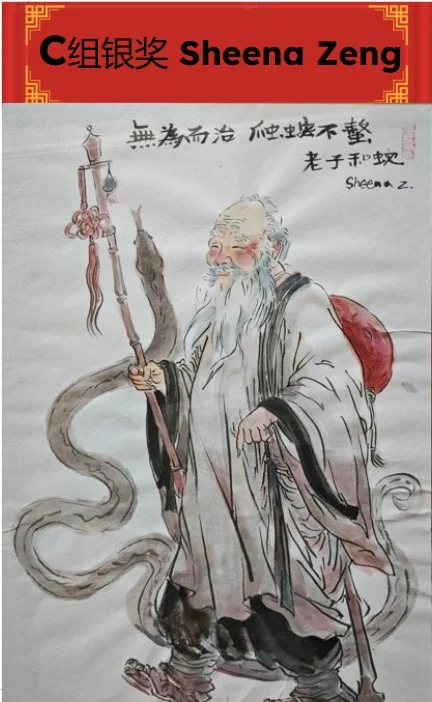 C组银奖 Sheena Zeng
無為而治 虺蛇不螫
老子和蛇
Sheena Z.